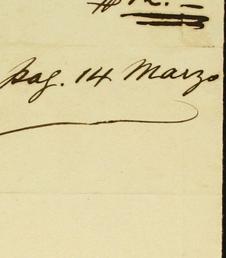 pag. 14 Marzo